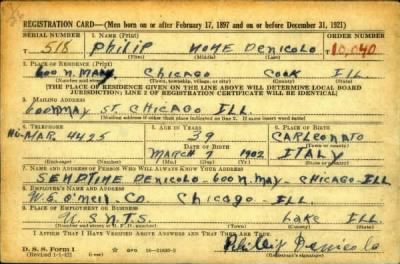 REGISTRATION CARD—(Men born on or after February 17, 1897 and on or before December 31, 1921)
SERIAL NUMBER 1. NAME (Print) ORDER NUMBER
518 Philip NONE Denicolo 10,040
(First) (Middle) (Last)
2. PLACE OF RESIDENCE (Print)
600 N. May Chicago Cook Ill
(Number and street) (Town, township, village, or city) (County) (State)
[THE PLACE OF RESIDENCE GIVEN ON THE LINE ABOVE WILL DETERMINE LOCAL BOARD
JURISDICTION; LINE 2 OF REGISTRATION CERTIFICATE WILL BE IDENTICAL]
3. MAILING ADDRESS
600 N MAY ST. CHICAGO ILL.
[Mailing address if other than place indicated on line 2. If same insert word same]
4. TELEPHONE 5. AGE IN YEARS 6. PLACE OF BIRTH
39
DATE OF BIRTH
MAR. 4425 MARCH 7 1902 ITALY
(Exchange) (Number) (Mo.) (Day) (Yr.) (State or country)
7. NAME AND ADDRESS OF PERSON WHO WILL ALWAYS KNOW YOUR ADDRESS
Denicolo - 600 N. May - Chicago - Ill
8. EMPLOYER'S NAME AND ADDRESS
W. E. O'Neil - Co Chicago - Ill
9. PLACE OF EMPLOYMENT OR BUSINESS
U.S.N.T.S. Lake Ill.
I AFFIRM THAT I HAVE VERIFIED ABOVE ANSWERS AND THAT THEY ARE TRUE.
D. S. S. Form 1
(Revised 1-1-42) Denicolo